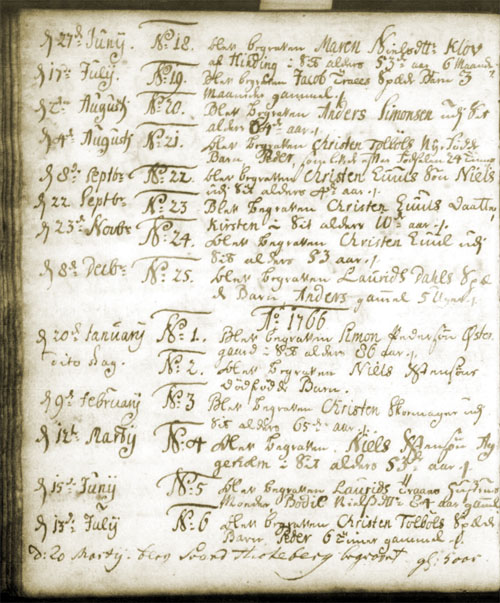 d 27de Junÿ. No 18. blev begraven Maren Nielsdttr Klov
af Hinding i Sit alders 53de aar 6 Maaned
d 17de Julÿ. No 19. blev begraven Jacob Traaes Spæde Barn 3
Maaneder gammel
d 2de Augusti No 20. Blev begraven Anders Simonsen udj Sit
alders aar.
d 4de Augusti No 21. blev begraven Christen Tolbols
Barn Peder, 24 timer
d 8de Septbr No 22. blev begraven Christen Søn Niels
udj Sit alders 4de aar.
d 22 Septbr No 23 Blev begraven Christen Daatter
Kirsten i Sit alders 10de aar.
d 23de Novbr No 24. blev begraven Christen udj
Sit alders 53 aar.
d 8de Decbr No 25. blev begraven Laurids Dahls Spæ-
de Barn Anders gamel 5 Uger.
Ao 1766
d 20de Januarÿ No 1. Blev begraven Simon Pedersøn Øster-
gaard i Sit alders 86 aar.
dito Dag. No 2. blev begraven Niels
dødfødde Barn.
d 9de Februarÿ No 3 Blev begraven Christen Skomager udj
Sit alders 65de aar.
d 12te Martÿ No 4 blev begraven Niels
i Sit alders 53de aar.
d 15de Junÿ No 5 blev begraven Laurids Traaes Hustrue
Bodil Nielsdttr 64 aar gaml
d 13de Julÿ No 6 blev begraven Christen Tolbols Spæde
Barn Peder 6 timer gammel
d: 20 Martÿ. blev begravet